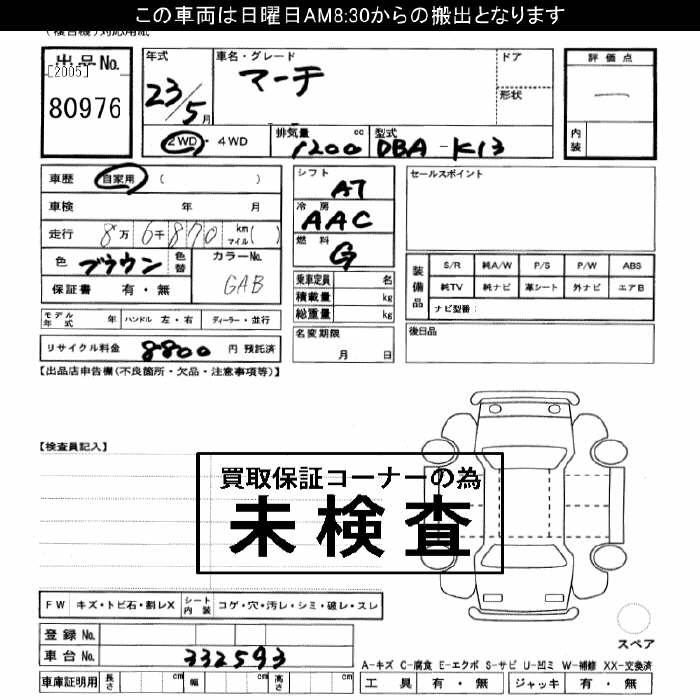 この車両は日曜日AM8:30からの搬出となります
出品No.
[2005]
80976
年式
23/5月
車名・グレード
マーチ
ドア
形状
評価点
—
内装
2WD・4WD
排気量 cc
1200
型式
DBA-K13
車歴 自家用 ( )
車検 年 月
走行 8万6千870 km マイル( )
色 ブラウン 色替
カラーNo.
GAB
保証書 有・無
モデル年式 年 ハンドル 左・右 ディーラー・並行
リサイクル料金 8800 円 預託済
シフト
AT
冷房
AAC
燃料
G
乗車定員 名
積載量 kg
総重量 kg
名変期限
月 日
セールスポイント
装備品
S/R 純A/W P/S P/W ABS
純TV 純ナビ 革シート 外ナビ エアB
ナビ型番:
後日品
【出品店申告欄(不良箇所・欠品・注意事項等)】
【検査員記入】
買取保証コーナーの為
未検査
FW キズ・トビ石・割レX シート内装 コゲ・穴・汚レ・シミ・破レ・スレ
登録No.
車台No. 332593
車庫証明用 長さ cm 幅 cm 高さ cm
スペア
A-キズ C-腐食 E-エクボ S-サビ U-凹ミ W-補修 XX-交換済
工具 有・無 ジャッキ 有・無